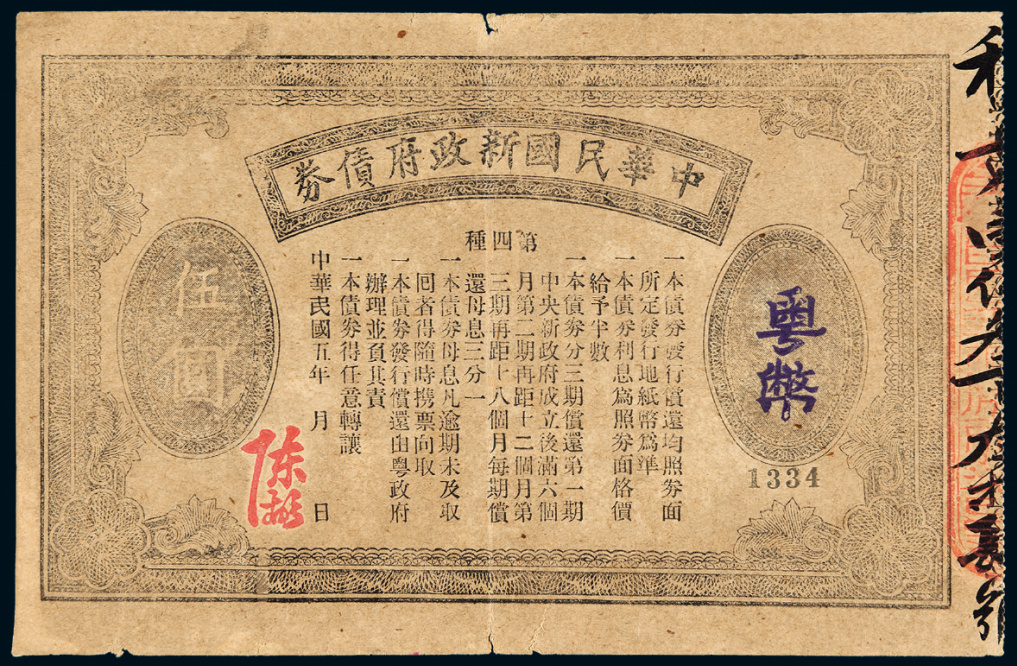 中華民國新政府債券
第四種
粵幣
1334
一本債券發行償還均照券面
所定發行地紙幣為準
一本債券利息為照券面格價
給予半數
一本債券分三期償還第一期
中央新政府成立後滿六個
月第二期再距十二個月第
三期再距十八個月每期償
還母息三分一
一本債券母息凡逾期未及取
囘者得隨時携票向取
一本債券發行償還由粵政府
辦理並負其責
一本債券得任意轉讓
中華民國五年 月 日
伍圓